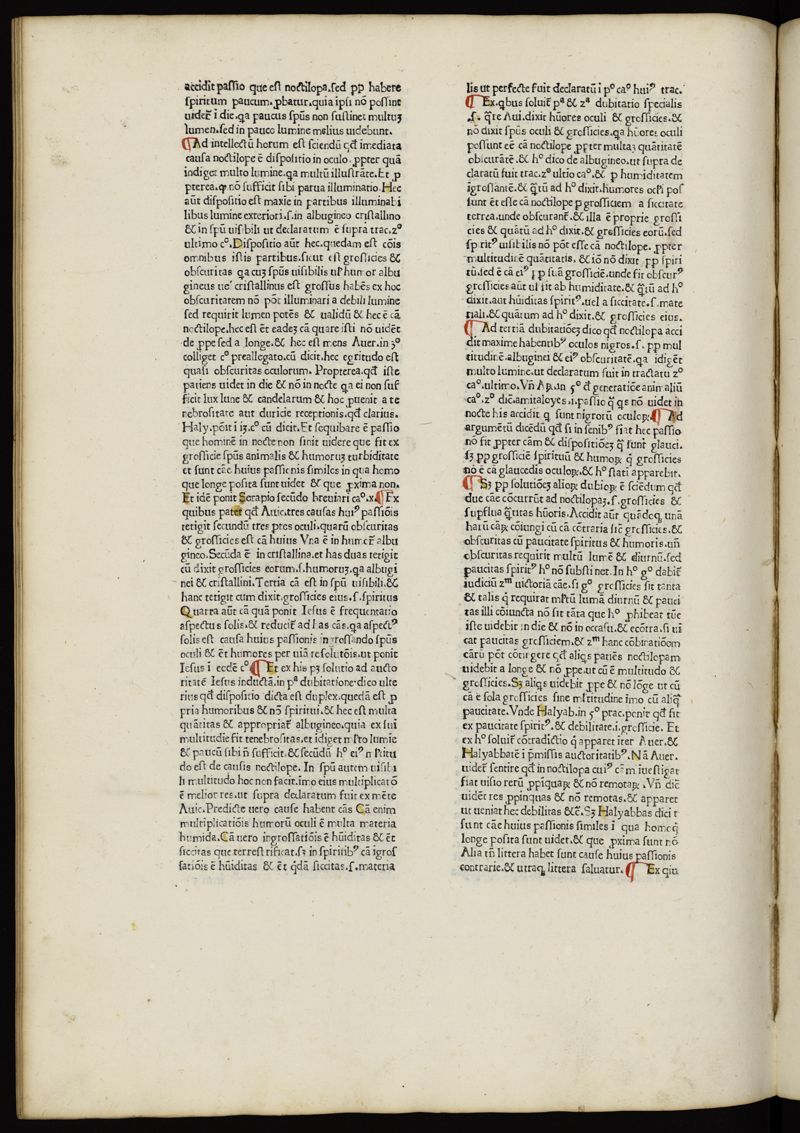 accidit passio que est noctilopa.sed pp habere
spiritum paucum.ꝓbatur.quia ipsi nō possint
uider̄ ī die.qa paucus spūs non sustinet multuꝫ
lumen.sed in pauco lumine melius uidebunt.
¶Ad intellectū horum est sciendū qd̄ imediata
causa noctilopē ē dispositio in oculo.ꝓpter quā
indiget multo lumine.qa multū illustrāte.Et ꝓ
pterea.ꝙ nō sufficit sibi parua illuminatio.Hec
aūt dispositio est maxie in partibus illuminabi
libus lumine exteriori.s.in albugineo cristallino
& in spū uisibili ut declaratum ē supra trac.z°
ultimo c°.Dispositio aūt hec.quedam est cōis
omnibus istis partibus.sicut est grossicies &
obscuritas qa cuꝫ spūs uisibilis ul̓ humor albu
gineus ue' cristallinus est grossus habēs ex hoc
obscuritatem nō pōt illuminari a debili lumine
sed requirit lumen potēs & ualidū & hec ē cā
noctilope.hec est ēt eadeꝫ cā quare isti nō uidēt
de ꝓpe sed a longe.& hec est mens Auer.in 3°
colliget c° preallegato.cū dicit.hec egritudo est
quasi obscuritas oculorum. Propterea.qd̄ iste
patiens uidet in die & nō in nocte qa ei non suf
ficit lux lune & candelarum & hoc ꝓuenit a te
nebrositate aut duricie receptionis.qd̄ clarius.
Haly.pōit ī 13.c° cū dicit.Et sequibare ē passio
que hominē in nocte non sinit uidere que fit ex
grossicie spūs animalis & humoruꝫ turbiditate
et sunt cāe huius passionis similes in qua homo
que longe posita sunt uidet & que ꝓxima non.
Et idē ponit Serapio secūdo breuiari ca°.x.¶Ex
quibus patet qd̄ Auic.tres causas hui⁹ passiōis
tetigit secundū tres ptes oculi.quarū obscuritas
& grossicies est cā huius Vna ē in humor̄ albu
gineo.Secūda ē in cristallina.et has duas tetigit
cū dixit grossicies eorum.s.humoruꝫ.qa albugi
nei & cristallini.Tertia cā est in spū uisibili.&
hanc tetigit cum dixit.grossicies eius.s.spiritus
Quarta aūt cā quā ponit Iesus ē frequentatio
aspectus solis.& reducit̄ ad has cās.qa aspect⁹
solis est causa huius passionis ingrossando spūs
oculi & ēt humores per uiā resolutōis.ut ponit
Iesus ī eodē c°¶Et ex his pꝫ solutio ad aucto
ritatē Iesus inductā.in pª dubitatione.dico ulte
rius qd̄ dispositio dicta est duplex.quedā est ꝓ
pria humoribus & nō spiritui.& hec est multa
quātitas & appropriat̄ albugineo.quia ex sui
multitudie fit tenebrositas.et idiget mlto lumie
& paucū sibi n̄ sufficit.& secūdū h° ei⁹ mltitu
do est de causis noctilope. In spū autem uisibi
li multitudo hoc non facit.imo eius multiplicatō
ē melior res.ut supra declaratum fuit ex mēte
Auic.Predicte uero cause habent cās Cā enim
multiplicatiōis humorū oculi ē multa materia
humida.Cā uero ingrossatiōis ē hūiditas & ēt
siccitas que terrestrificat.sꝫ in spiritib⁹ cā igros
satiōis ē hūiditas & ēt qdā siccitas.s.materia
lis ut perfecte fuit declaratū ī p° ca° hui⁹ trac.
¶Ex.qbus soluit̄ pª & zª dubitatio specialis
.s. q̄re Aui.dixit hūores oculi & grossicies.&
nō dixit spūs oculi & grossicies.qa hūores oculi
possunt eē cā noctilope ꝓpter multaꝫ quātitatē
obscurātē.& h° dico de albugineo.ut supra de
claratū fuit trac.z° ultio ca°.& p humiditatem
igrossantē.& q̄tū ad h° dixit.humores ocl̓i pos
sunt ēt esse cā noctilope p grossiciem a siccitate
terrea.unde obscurant̄.& illa ē proprie grossi
cies & quātū ad h° dixit.& grossicies eorū.sed
spiritꝰ uisibilis nō pōt esse cā noctilope. ꝓpter
multitudinē quātitatis. & iō nō dixit pp spiri
tū.sed ē cā ei⁹ ꝓp suā grossiciē.unde fit obscur⁹
grossicies aūt ul̓ fit ab humiditate.& q̄tū ad h°
dixit.aut hūiditas spirit⁹.uel a siccitate.s.mate
riali.& quātum ad h° dixit.& grossicies eius.
¶Ad tertiā dubitatiōeꝫ dico qd̄ noctilopa acci
dit maxime habentib⁹ oculos nigros.s. pp mul
titudinē.albuginei & ei⁹ obscuritatē.qa idigēt
multo lumine.ut declaratum fuit in tractatu z°
ca°.ultimo.Vn̄ Aꝝ.in 5° d̄ generatiōe animaliū
ca°.z° dic̄.amitaloyes.i.passio q̄ qs nō uidet in
nocte his accidit q̄ sunt nigrorū oculoꝝ.¶Ad
argumētū dicēdū qd̄ si in senib⁹ fiat hec passio
nō fit ꝓpter cām & dispositiōeꝫ q̄ sunt glauci.
sꝫ pp grossiciē spirituū & humoꝝ q̄ grossicies
nō ē cā glaucedis oculoꝝ.& h° stati apparebit.
¶Sꝫ pp solutiōeꝫ alioꝝ dubioꝝ ē sciēdum qd̄
due cāe cōcurrūt ad noctilopaꝫ.s.grossicies &
supflua q̄titas hūoris.Accidit aūt quādoqꝫ unā
harū cāꝝ cōiungi cū cā cōtraria sic̄ grossicies.&
obscuritas cū paucitate spiritus & humoris.un̄
obscuritas requirit multū lumē & diurnū.sed
paucitas spirit⁹ h° nō substinet. In h° g° dabit̄
iudiciū zᵐ uictoriā cāe.si g° grossicies sit tanta
& talis q̄ requirat mltū lumē diurnū & pauci
tas illi cōiuncta nō sit tāta que h° ꝓhibeat tūc
iste uidebit in die & nō in occasu.& ecōtra.si ui
cat paucitas grossiciem.& zᵐ hanc cōbinatiōem
cāꝝ pōt cōtigere qd̄ aliqs patiēs noctilopam
uidebit a longe & nō ꝓpe.ut cū ē multitudo &
grossicies.Sꝫ aliqs uidebit ꝓpe & nō lōge ut cū
cā ē sola grossicies sine mltitudine imo cū aliq̄
paucitate.Vnde Halyab.in 5° prac.ponit qd̄ fit
ex paucitate spirit⁹.& debilitate.i.grossicie. Et
ex h° soluit̄ cōtradictio q̄ apparet iter Auer.&
Halyabbatē ī p̄missis auctoritatib⁹.Nā Auer.
uidet̄ sentire qd̄ in noctilopa cui⁹ cām iuestigat
fiat uisio rerū ꝓpiquaꝝ & nō remotaꝝ .Vn̄ dic̄
uidēt res ꝓpinquas & nō remotas.& apparet
ut ueniat hec debilitas &c̄.Sꝫ Halyabbas dicit
sunt cāe huius passionis similes ī qua homeq̄
longe posita sunt uidet.& que ꝓxima sunt nō
Alia tn̄ littera habet sunt cause huius passionis
contrarie.& utraqꝫ littera saluatur.¶Ex qui